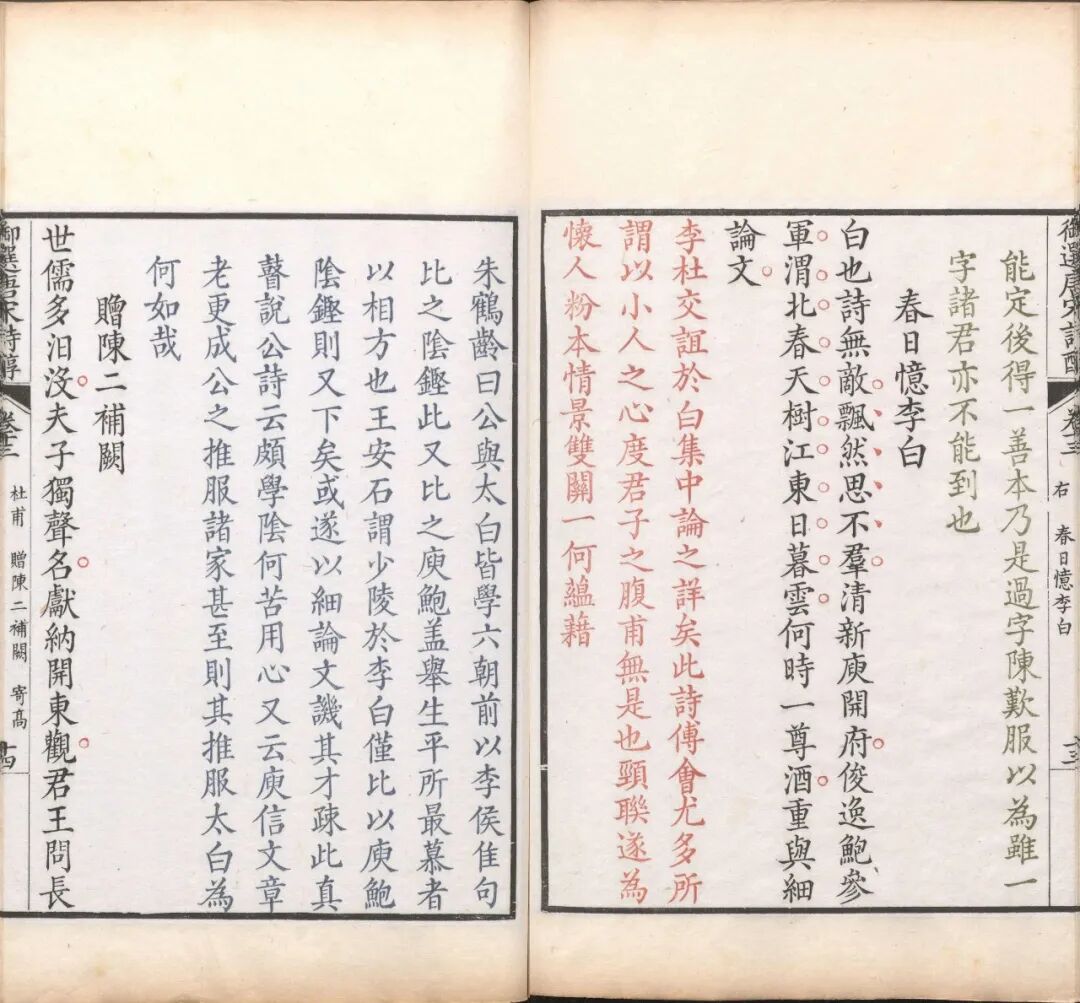 右 春日憶李白
能定後得一善本乃是過字陳歎服以為雖一
字諸君亦不能到也
春日憶李白
白也詩無敵飄然思不羣清新庾開府俊逸鮑參
軍渭北春天樹江東日暮雲何時一尊酒重與細
論文
李杜交誼於白集中論之詳矣此詩傅會尤多所
謂以小人之心度君子之腹甫無是也頸聯遂為
懷人粉本情景雙關一何蘊藉
朱鶴齡曰公與太白皆學六朝前以李侯佳句
比之陰鏗此又比之庾鮑盖舉生平所最慕者
以相方也王安石謂少陵於李白僅比以庾鮑
陰鏗則又下矣或遂以細論文譏其才疎此真
瞽說公詩云頗學陰何苦用心又云庾信文章
老更成公之推服諸家甚至則其推服太白為
何如哉
贈陳二補闕
世儒多汩沒夫子獨聲名獻納開東觀君王問長
御選唐宋詩醇 卷十三 杜甫 贈陳二補闕 寄高 十四